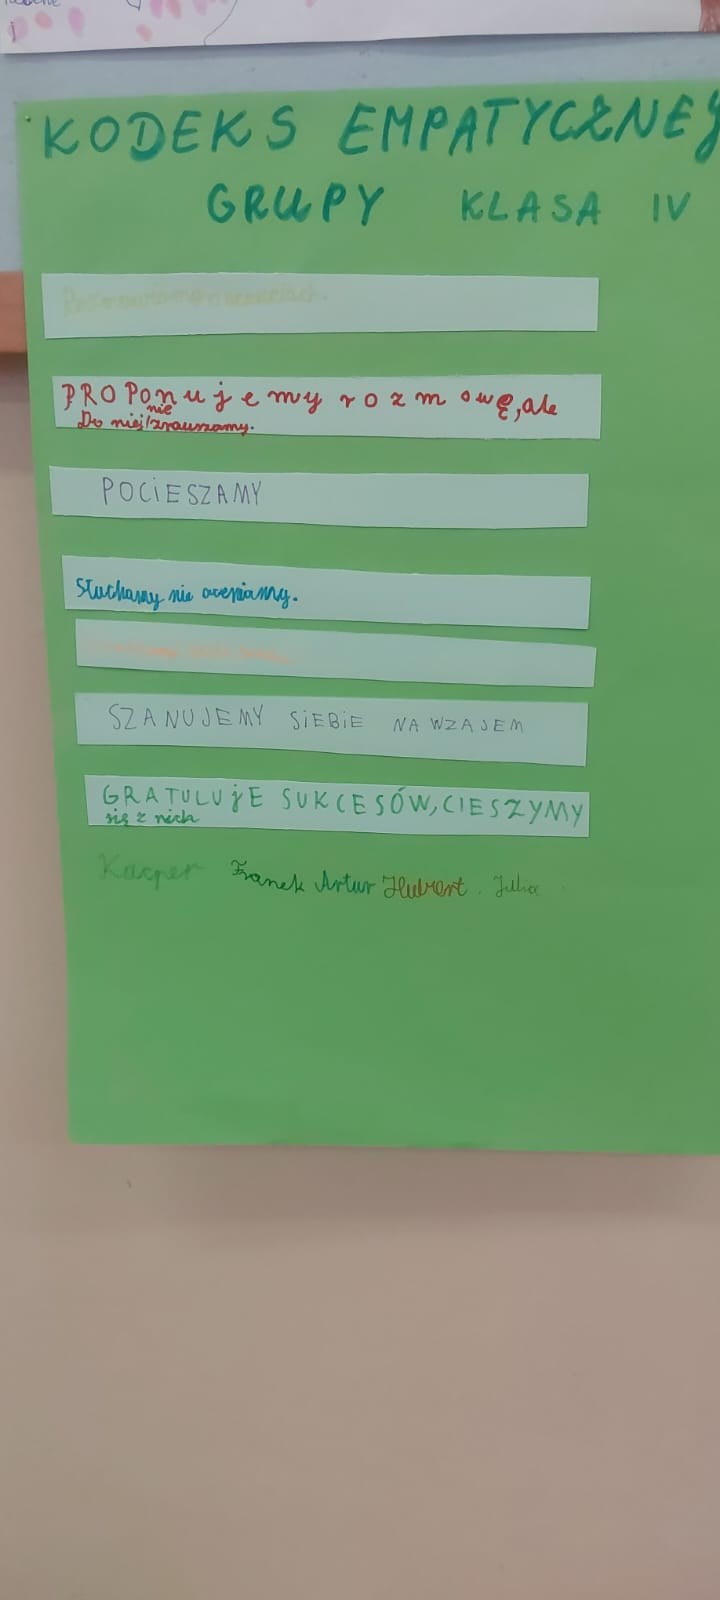 KODEKS EMPATYCZNEJ
GRUPY KLASA IV
PROPonujemy rozmowę, ale
nie
Do niej zmuszamy.
POCIESZAMY
Słuchamy nie oceniamy.
SZANUJEMY SIEBIE NAWZAJEM
GRATULUJE SUKCESÓW, CIESZYMY
się z nich
Kacper Franek Artur Hubert. Julia